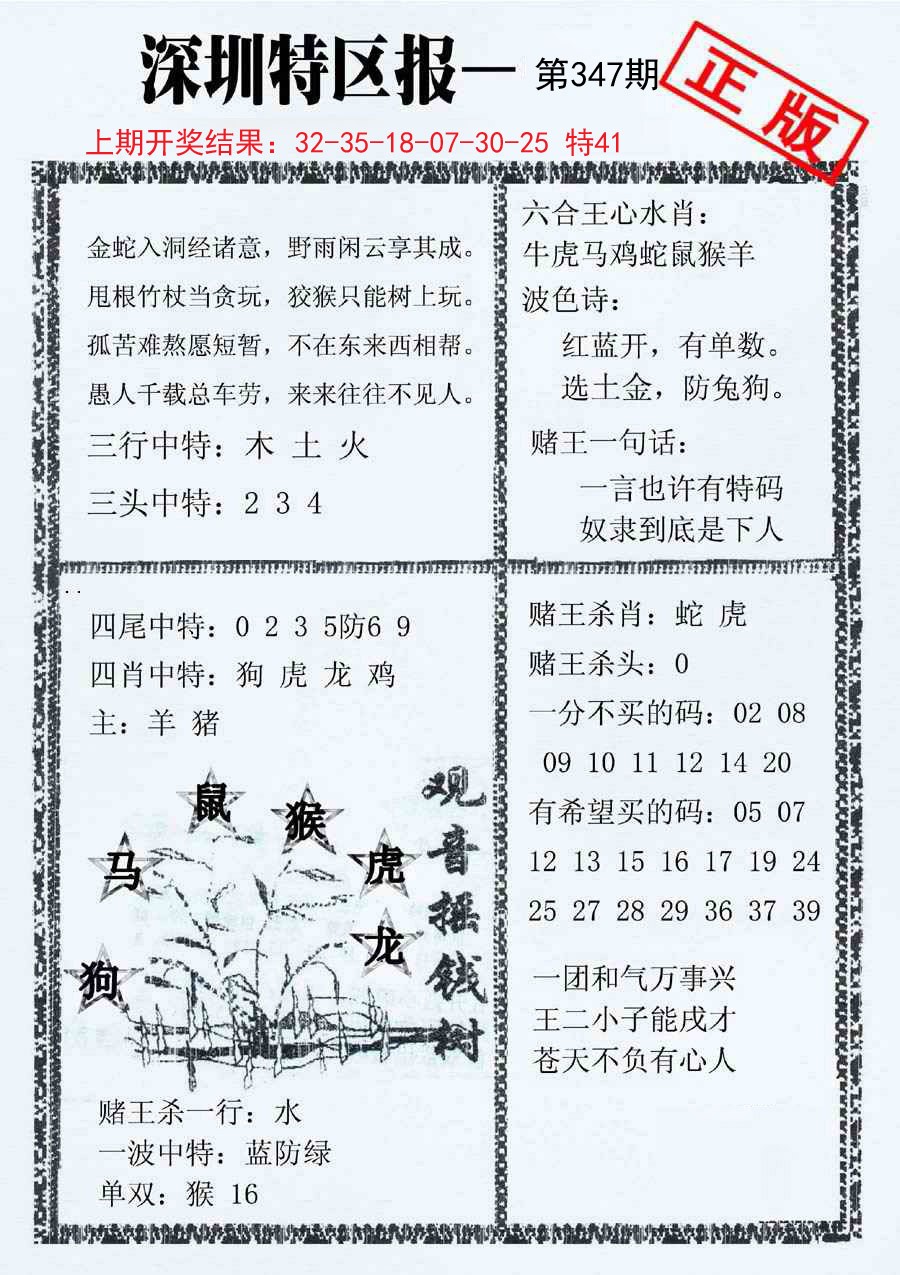 深圳特区报一 第347期
正版
上期开奖结果：32-35-18-07-30-25 特41
金蛇入洞经诸意，野雨闲云享其成。
甩根竹杖当贪玩，狡猴只能树上玩。
孤苦难熬愿短暂，不在东来西相帮。
愚人千载总车劳，来来往往不见人。
三行中特：木 土 火
三头中特：2 3 4
六合王心水肖：
牛虎马鸡蛇鼠猴羊
波色诗：
红蓝开，有单数。
选土金，防兔狗。
赌王一句话：
一言也许有特码
奴隶到底是下人
四尾中特：0 2 3 5防6 9
四肖中特：狗 虎 龙 鸡
主：羊 猪
鼠
猴
马
虎
龙
狗
观音摇钱树
赌王杀一行：水
一波中特：蓝防绿
单双：猴 16
赌王杀肖：蛇 虎
赌王杀头：0
一分不买的码：02 08
09 10 11 12 14 20
有希望买的码：05 07
12 13 15 16 17 19 24
25 27 28 29 36 37 39
一团和气万事兴
王二小子能戌才
苍天不负有心人